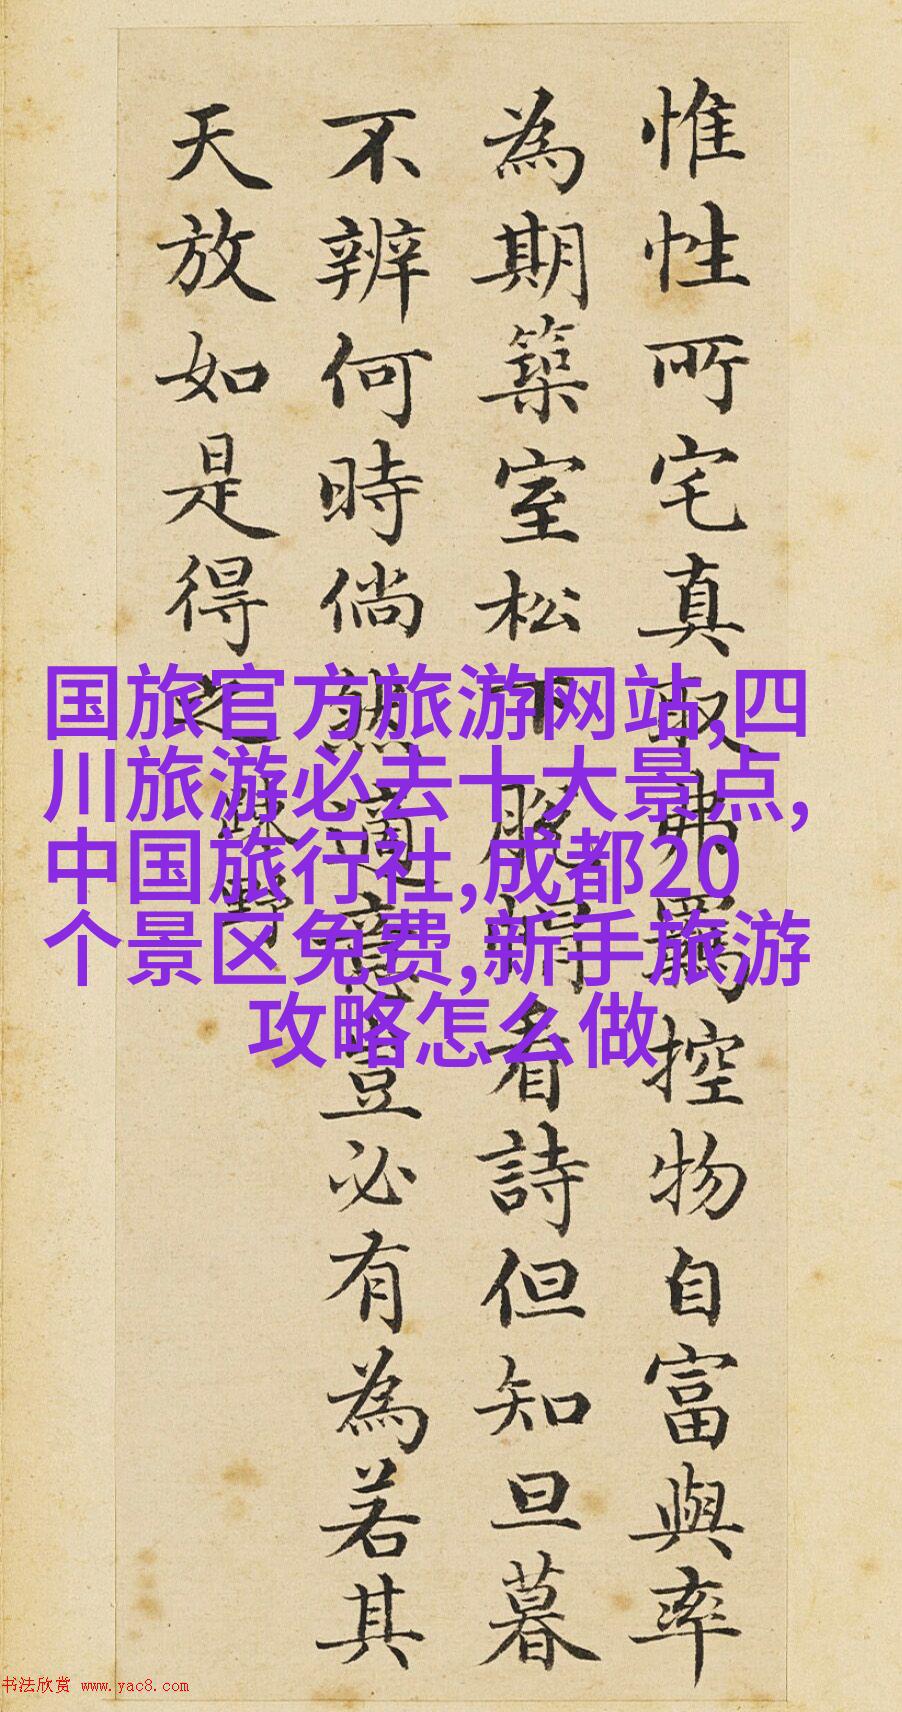 惟性所宅真取弗羈控物自富與率
為期築室松下脫帽看詩但知旦暮
不辨何時倘然適意豈必有為若其
天放如是得之
疎野
国旅官方旅游网站,四
川旅游必去十大景点,
中国旅行社,成都20
个景区免费,新手旅游
攻略怎么做
书法欣赏 www.yac8.com